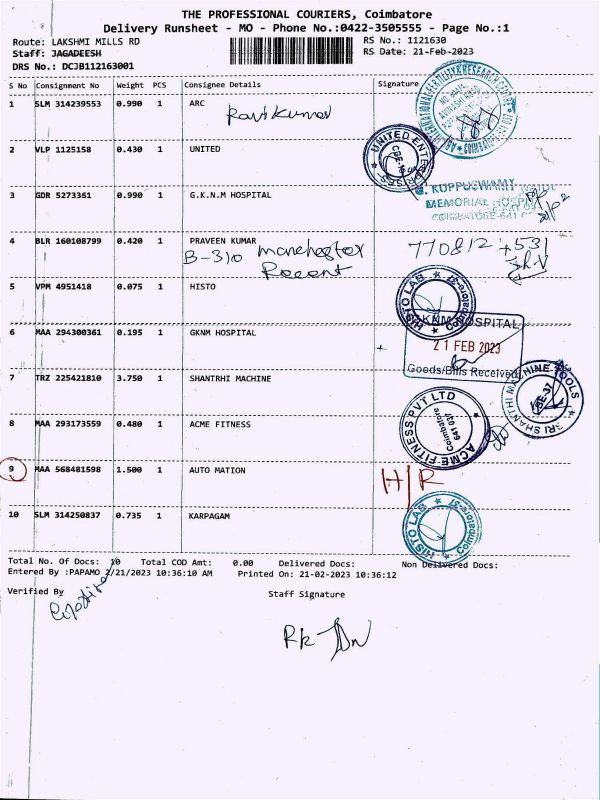 THE PROFESSIONAL COURIERS, Coimbatore
Delivery Runsheet - MO - Phone No.:0422-3505555 - Page No.:1
Route: LAKSHMI MILLS RD RS No.: 1121630
Staff: JAGADEESH RS Date: 21-Feb-2023
DRS No.: DCJB112163001
S No Consignment No Weight PCS Consignee Details Signature
1 SLM 314239553 0.990 1 ARC
Ravikumar
2 VLP 1125158 0.430 1 UNITED
UNITED ENTERPRISES
3 GDR 5273361 0.990 1 G.K.N.M HOSPITAL
G. KUPPUSWAMY NAIDU
MEMORIAL HOSPITAL
COIMBATORE-641
4 BLR 160108799 0.420 1 PRAVEEN KUMAR
B-310 manchester
5 VPM 4951418 0.075 1 HISTO
HISTO LAB Coimbatore-37
6 MAA 294300361 0.195 1 GKNM HOSPITAL
GKNM HOSPITAL
21 FEB 2023
Goods/Bills Received
7 TRZ 225421810 3.750 1 SHANTRHI MACHINE
SRI SHANTHI MACHINE TOOLS
CBE-37
8 MAA 293173559 0.480 1 ACME FITNESS
ACME-FITNESS PVT LTD
Coimbatore
641 037
9 MAA 568481598 1.500 1 AUTO MATION
H/R
10 SLM 314250837 0.735 1 KARPAGAM
HISTO LAB Coimbatore-37
Total No. Of Docs: 10 Total COD Amt: 0.00 Delivered Docs: Non Delivered Docs:
Entered By :PAPAMO 2/21/2023 10:36:10 AM Printed On: 21-02-2023 10:36:12
Verified By Staff Signature